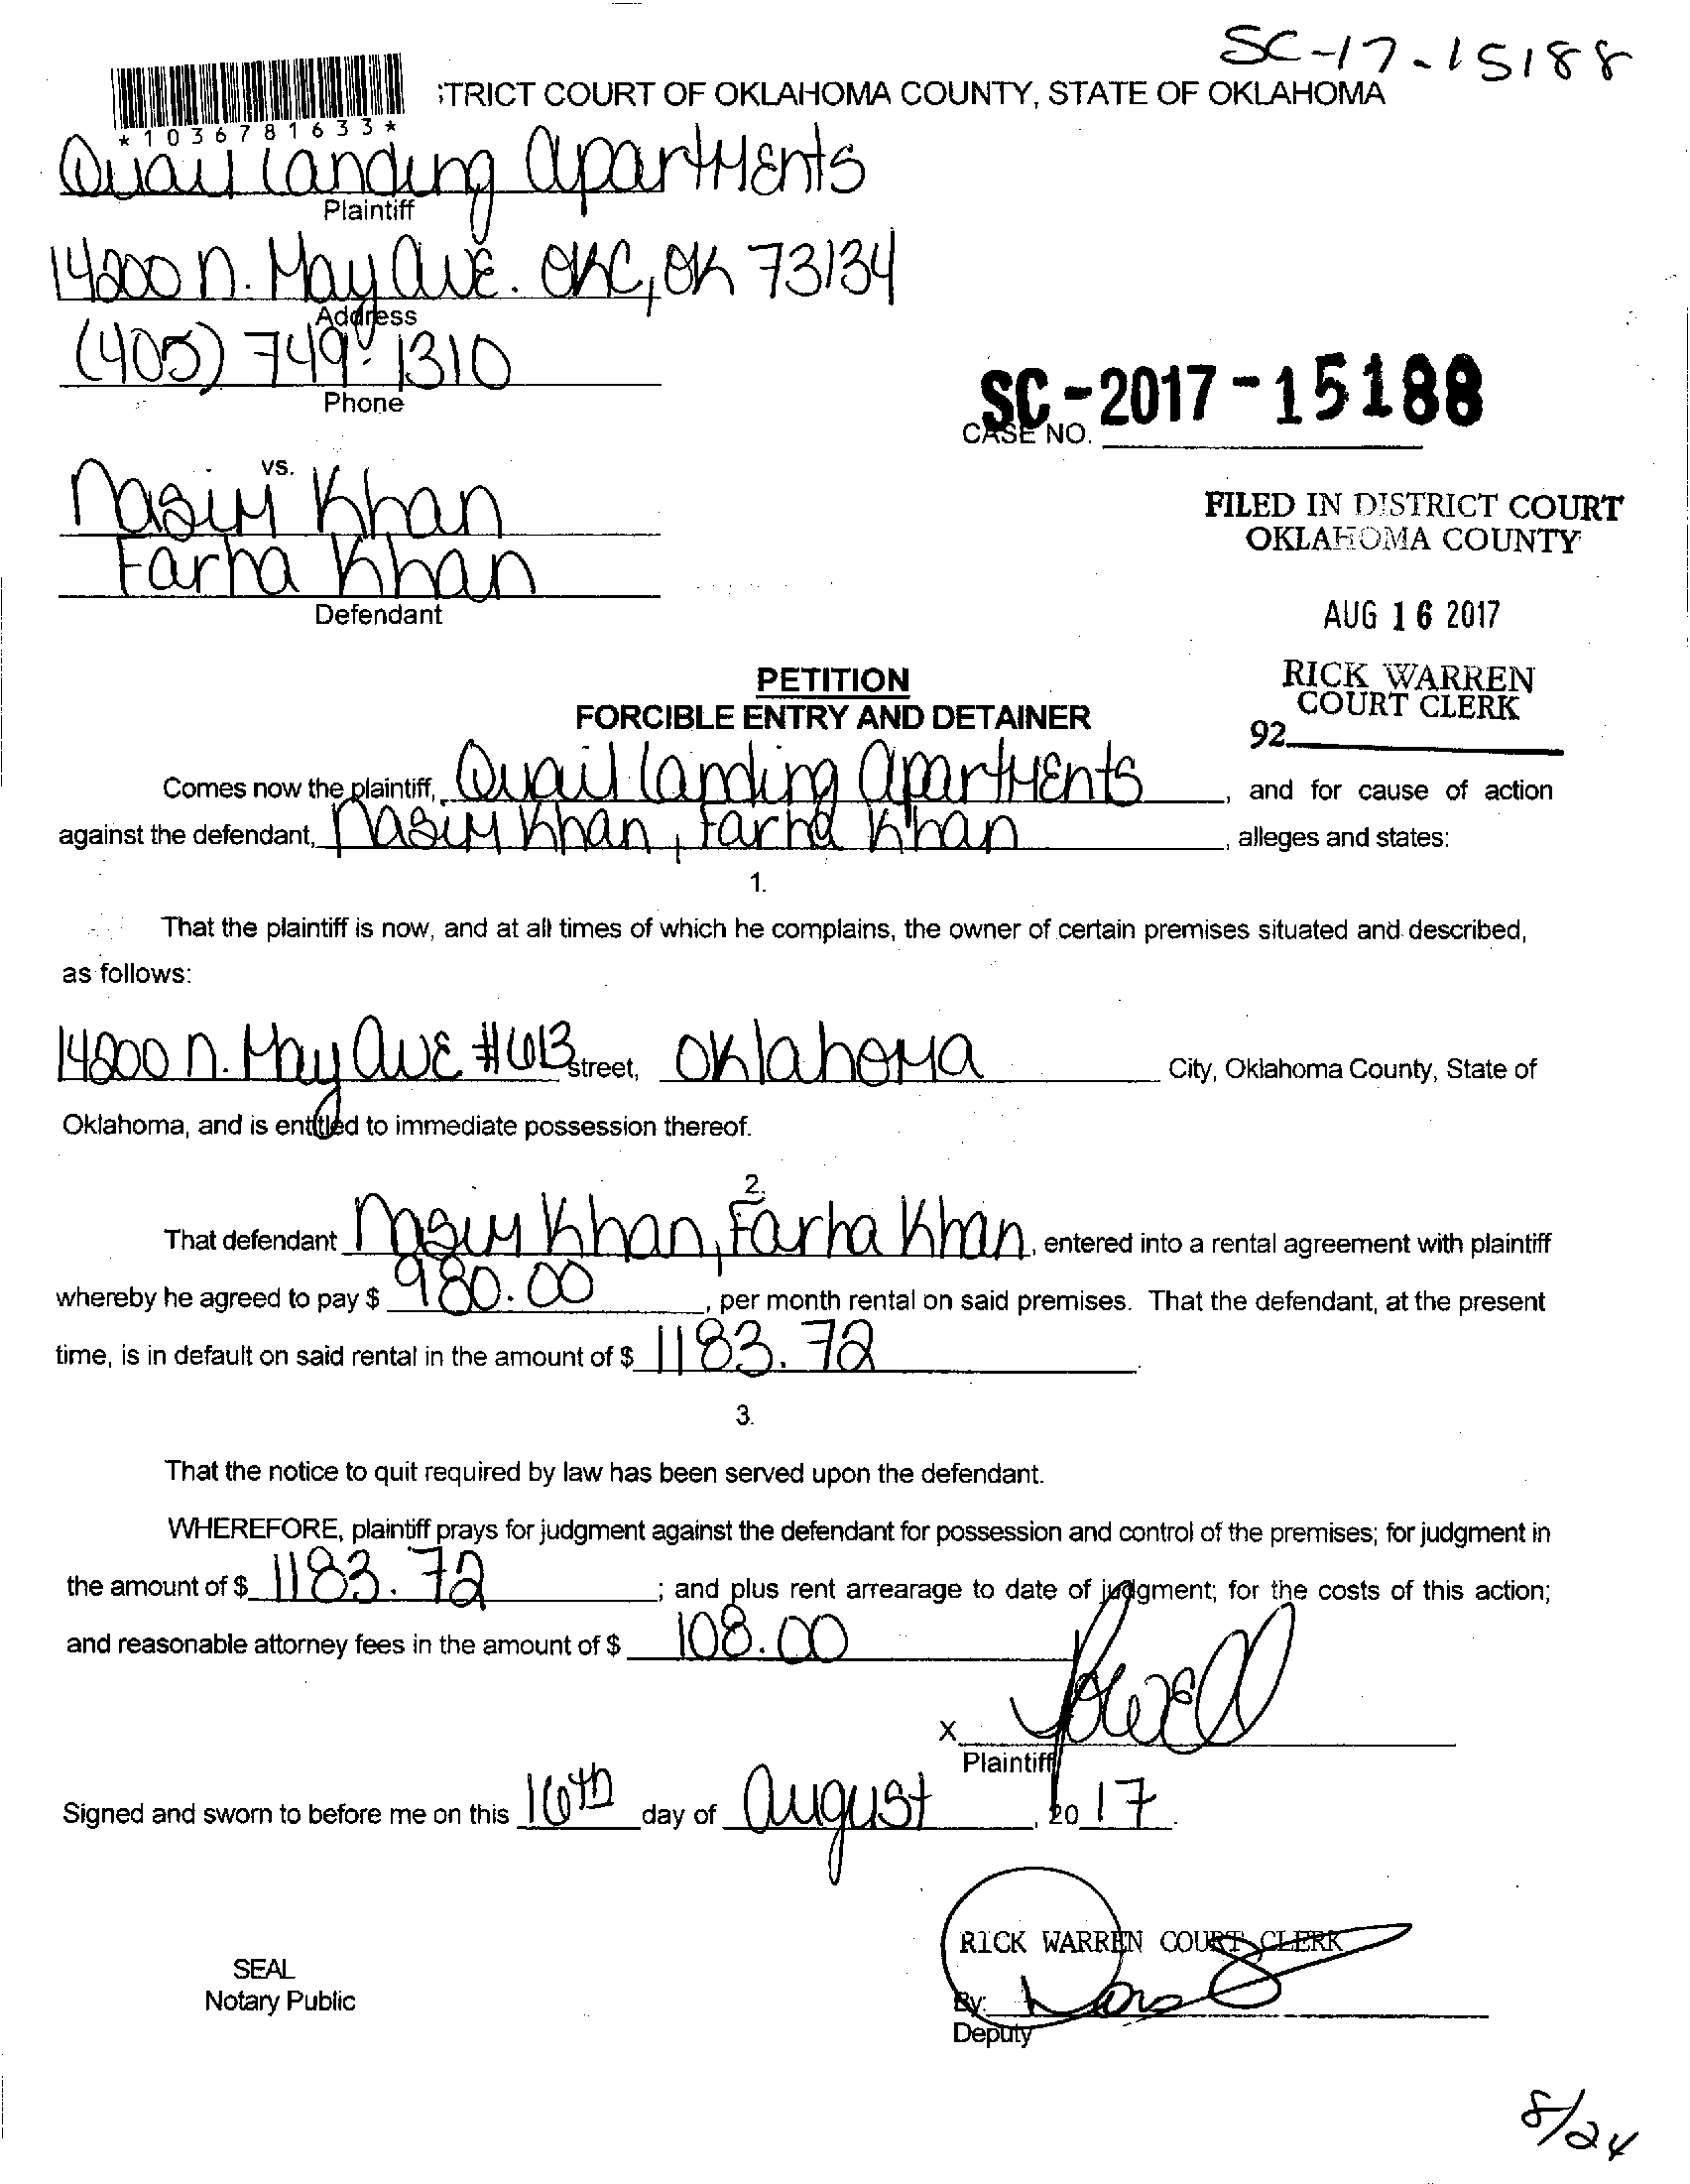 SC-17-15188
;TRICT COURT OF OKLAHOMA COUNTY, STATE OF OKLAHOMA
*1036781633*
Quail Landing Apartments
Plaintiff
14200 N. May Ave. OKC, OK 73134
Address
(405) 749-1310
Phone
SC-2017-15188
CASE NO.
vs.
Nasim Khan
Farha Khan
Defendant
FILED IN DISTRICT COURT
OKLAHOMA COUNTY
AUG 16 2017
RICK WARREN
COURT CLERK
92
PETITION
FORCIBLE ENTRY AND DETAINER
Comes now the plaintiff, Quail Landing Apartments, and for cause of action
against the defendant, Nasim Khan, Farha Khan, alleges and states:
1.
That the plaintiff is now, and at all times of which he complains, the owner of certain premises situated and described,
as follows:
14200 N. May Ave #613 street, Oklahoma City, Oklahoma County, State of
Oklahoma, and is entitled to immediate possession thereof.
2.
That defendant Nasim Khan, Farha Khan, entered into a rental agreement with plaintiff
whereby he agreed to pay $ 980.00, per month rental on said premises. That the defendant, at the present
time, is in default on said rental in the amount of $ 1183.72.
3.
That the notice to quit required by law has been served upon the defendant.
WHEREFORE, plaintiff prays for judgment against the defendant for possession and control of the premises; for judgment in
the amount of $ 1183.72; and plus rent arrearage to date of judgment; for the costs of this action;
and reasonable attorney fees in the amount of $ 108.00
X
Plaintiff
Signed and sworn to before me on this 16th day of August, 2017.
RICK WARREN COURT CLERK
SEAL
Notary Public
By:
Deputy
8/24